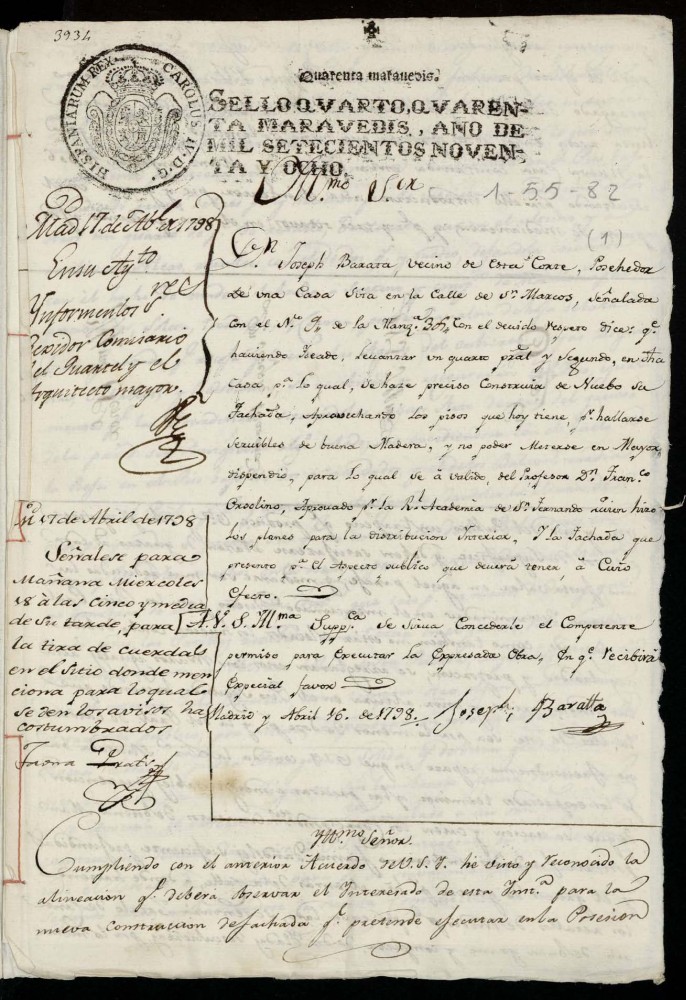 3934
HISPANIARUM REX. CAROLUS IV. D. G.
Quarenta maravedis.
SELLO QVARTO, QVAREN-
TA MARAVEDIS, AÑO DE
MIL SETECIENTOS NOVEN-
TA Y OCHO.
Yll.mo S.or
1-55-82
(1)
Mad 17 de Ab.l de 1798
En su Ay.to
Ynformen los S.res
Rexidor Comisario
del Quartel y el
Arquitecto mayor.
Dn. Joseph Barata, vecino de esta Corte, Posehedor
de una Casa Sita en la Calle de Sn. Marcos, señalada
con el N.o 9, de la Manz.a 306, Con el devido respeto dice: q.e
haviendo Ideado, Levantar un quarto pral y Segundo, en dha
Casa p.a lo qual, se haze preciso Construir de Nuebo su
Fachada, Aprovechando Los pisos que hoy tiene, p.r hallarse
servibles de buena Madera, y no poder Meterse en Mayor
dispendio, para lo qual se á valido, del Profesor Dn. Fran.co
Orsolino, Aprovado p.r la Rl. Academia de Sn. Fernando quien hizo
Los planes para la distribucion Interior, Y la Fachada que
presento p.r el Aspecto publico que deverá tener, á Cuio
efecto.
M.d 17 de Abril de 1798
Señalese para
Mañana Miercoles
18 à las cinco y media
de su tarde, para
la tira de cuerdas
en el Sitio donde men
ciona para lo qual
se den los avisos ha
costumbrados
A. V. S. Yll.ma Supp.ca Se sirva Concederle el Competente
permiso para Executar la Expresada Obra, En q.e recibirá
Especial favor
Madrid y Abril 16. de 1798. Joseph Baratta
Yll.mo Señor.
Cumpliendo con el anterior Acuerdo de V. S. Y. he visto y reconocido la
alineacion q.e deberá observar el Interesado de esta Inst.a para la
nueva construccion de fachada q.e pretende ejecutar en la Posesion